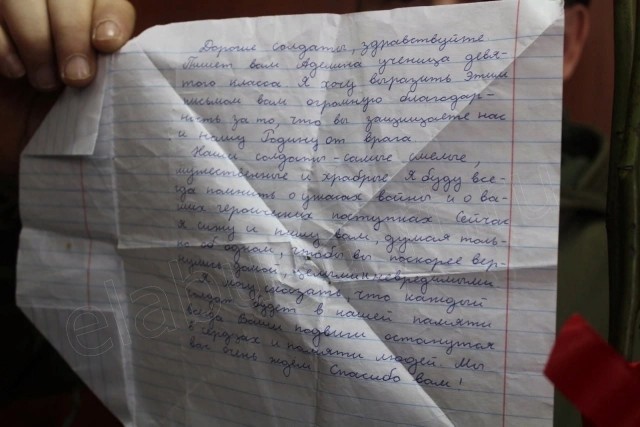 Дорогие солдаты, здравствуйте
Пишет вам Аделина ученица девя-
того класса Я хочу выразить этим
письмом вам огромную благодар-
ность за то, что вы защищаете нас
и нашу Родину от врага
Наши солдаты - самые смелые,
мужественные и храбрые. Я буду все-
гда помнить о ужасах войны и о ва-
ших героических поступках Сейчас
я сижу и пишу вам, думая толь-
ко об одном, чтобы вы поскорее вер-
нулись домой, целыми и невредимыми
Я хочу сказать, что каждый
солдат будет в нашей памяти
ваши подвиги останутся
в сердцах и памяти людей. Мы
вас очень ждем Спасибо вам!
elab